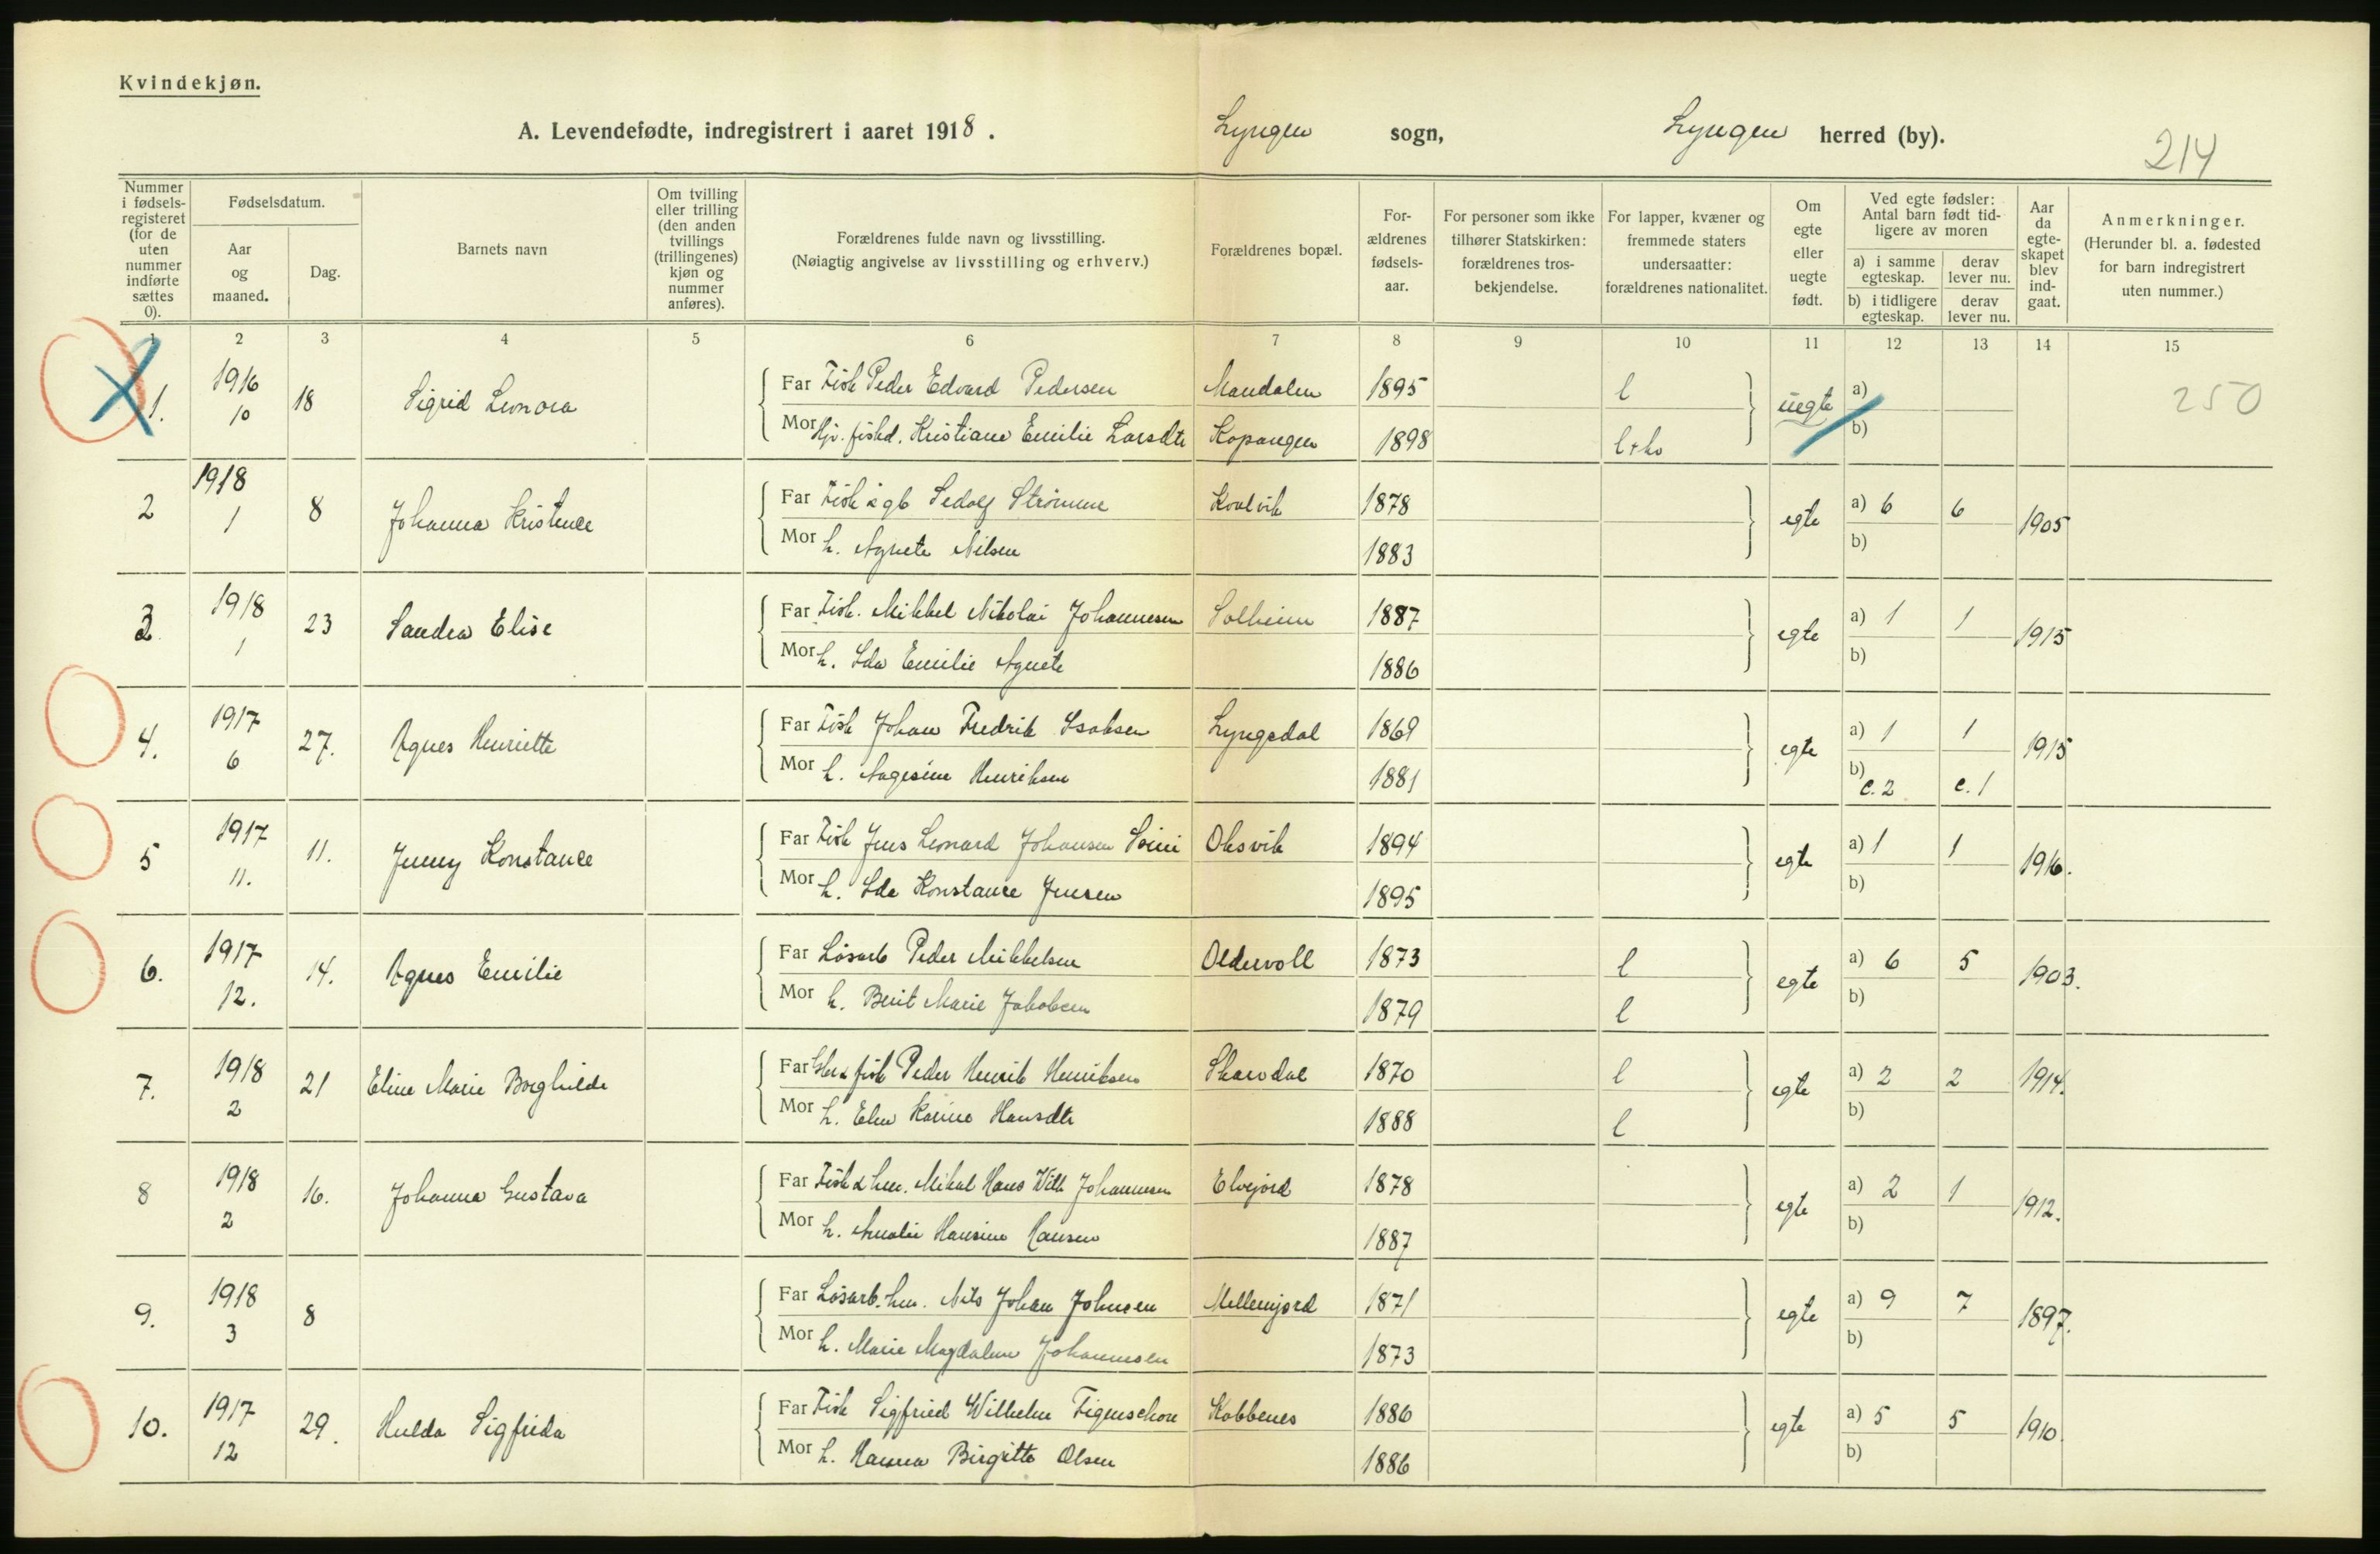 Kvindekjøn.
A. Levendefødte, indregistrert i aaret 1918. Lyngen sogn, Lyngen herred (by).
214
Nummer i fødsels-registeret (for de uten nummer indførte sættes 0).
Fødselsdatum.
Aar og maaned.
Dag.
Barnets navn
Om tvilling eller trilling (den anden tvillings (trillingenes) kjøn og nummer anføres).
Forældrenes fulde navn og livsstilling.
(Nøiagtig angivelse av livsstilling og erhverv.)
Forældrenes bopæl.
For-ældrenes fødsels-aar.
For personer som ikke tilhører Statskirken: forældrenes tros-bekjendelse.
For lapper, kvæner og fremmede staters undersaatter: forældrenes nationalitet.
Om egte eller uegte født.
Ved egte fødsler: Antal barn født tid-ligere av moren
a) i samme egteskap. derav lever nu.
b) i tidligere egteskap. derav lever nu.
Aar da egte-skapet blev ind-gaat.
Anmerkninger.
(Herunder bl. a. fødested for barn indregistrert uten nummer.)
1 2 3 4 5 6 7 8 9 10 11 12 13 14 15
1. 1916 10 18 Sigrid Leonora
Far Fisk Peder Edvard Pedersen Mandalen 1895 l uegte a) 250
Mor Hjv. fiskd. Kristiane Emilie Larsdtr Kopangen 1898 l+kv b)
2 1918 1 8 Johanna Kristence
Far Fisk & gb Sedolf Strømme Koalvik 1878 egte a) 6 6 1905
Mor h. Agnete Nilsen 1883 b)
3 1918 1 23 Sandra Elise
Far Fisk. Mikkel Nikolai Johannesen Solheim 1887 egte a) 1 1 1915
Mor h. Ida Emilie Agnete 1886 b)
4. 1917 6 27. Agnes Henriette
Far Fisk Johan Fredrik Isaksen Lyngsdal 1869 egte a) 1 1 1915
Mor h. Aagesine Henriksen 1881 b) e. 2 e. 1
5 1917 11. 11. Jenny Konstance
Far Fisk Jens Leonard Johansen Soini Oksvik 1894 egte a) 1 1 1916.
Mor h. Ida Konstance Jensen 1895 b)
6. 1917 12. 14. Agnes Emilie
Far Løsarb Peder Mikkelsen Oldervoll 1873 l egte a) 6 5 1903.
Mor h. Berit Marie Jakobsen 1879 l b)
7. 1918 2 21 Eline Marie Borghilde
Far & fisk Peder Henrik Henriksen Skardal 1870 l egte a) 2 2 1914.
Mor h. Elen Karine Hansdtr 1888 l b)
8 1918 2 16. Johanna Gustava
Far Fisk & hm. Mikal Hans Wilh Johannesen Elvejord 1878 egte a) 2 1 1912.
Mor h. Amalie Hansine Hansen 1887 b)
9. 1918 3 8
Far Løsarb. hm. Nils Johan Johnsen Mellemjord 1871 egte a) 9 7 1897.
Mor h. Marie Magdalene Johannesen 1873 b)
10. 1917 12 29. Hulda Sigfrida
Far Fisk Sigfried Wilhelm Figenschou Kobbenes 1886 egte a) 5 5 1910
Mor h. Hanna Birgitte Olsen 1886 b)